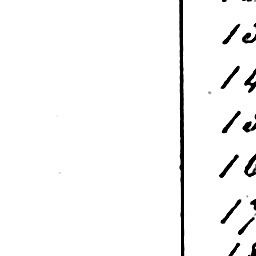 13
14
15
16
17
18